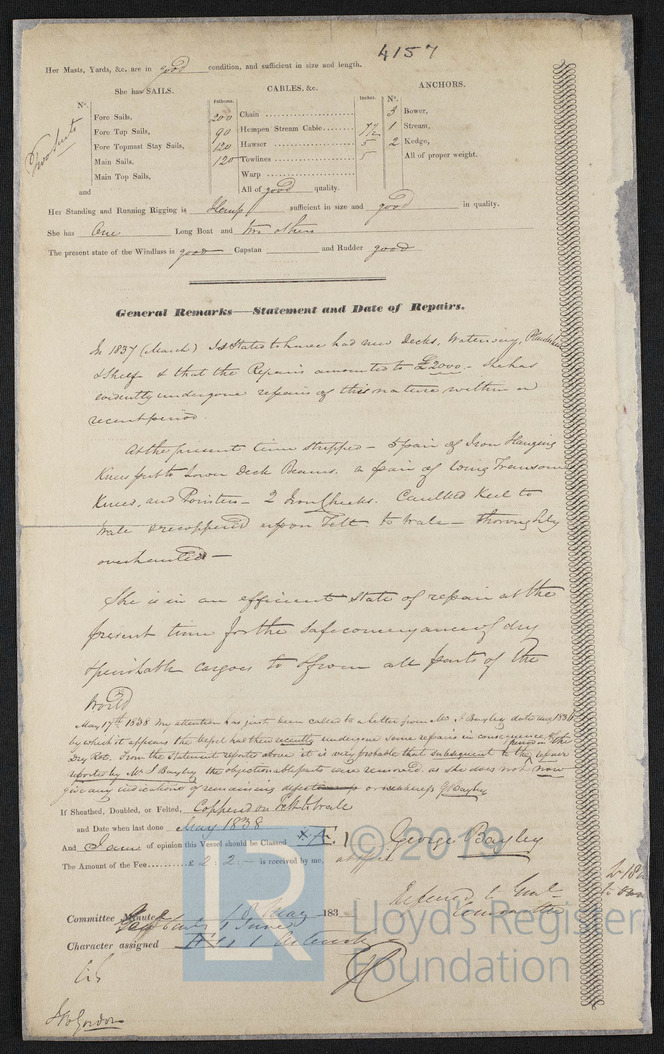 4157
Her Masts, Yards, &c. are in good condition, and sufficient in size and length.
She has SAILS.
CABLES, &c.
ANCHORS.
Nº.
Fathoms.
Inches.
Nº.
Two Suits
Fore Sails,
Fore Top Sails,
Fore Topmast Stay Sails,
Main Sails,
Main Top Sails,
and
200 Chain
90 Hempen Stream Cable 7½
120 Hawser 5
120 Towlines 5
Warp
All of good quality.
3 Bower,
1 Stream,
2 Kedge,
All of proper weight.
Her Standing and Running Rigging is Hemp sufficient in size and good in quality.
She has One Long Boat and two others
The present state of the Windlass is good Capstan and Rudder good
General Remarks—Statement and Date of Repairs.
In 1837 (March) Is Stated to have had new Decks, Waterways,
& Shelf & that the Repairs amounted to £2000 – She has
evidently undergone repairs of this nature within a
recent period.
At the present time stripped – 5 pair of Iron Hanging
Knees put to Lower Deck Beams. a pair of Wing Transom
Knees, and Pointers – 2 Iron Cheeks. Caulked Keel to
Wale & recoppered upon Felt to Wale – thoroughly
overhauled –
She is in an efficient State of repair at the
present time for the safe conveyance of dry
& perishable cargoes to & from all parts of the
World
May 17th 1838 My attention has just been called to a letter from Mr. J Bayley dated Aug 1836
by which it appears the Vessel had then recently undergone some repairs in consequence of
Dry Rot. From the Statement reported above it is very probable that subsequent to the period in the
reported by Mr. J Bayley the objectionable parts were removed as she does not now
give any indications of remaining defect or weakness G Bayley
If Sheathed, Doubled, or Felted, Coppered on Felt to Wale
and Date when last done May 1838
And I am of opinion this Vessel should be Classed
The Amount of the Fee £ 2 : 2 : – is received by me,
George Bayley
Committee Minute 18 May 183
1 June
Character assigned
Deferred to Genl
Committee
J B Gordon
© 2019
LR
Lloyd's Register
Foundation